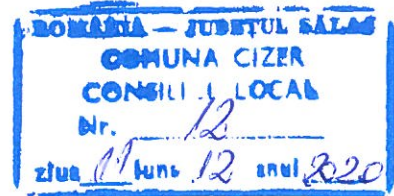 ROMÂNIA — JUDEȚUL SĂLAJ
COMUNA CIZER
CONSILIUL LOCAL
Nr. 12
ziua 11 luna 12 anul 2020